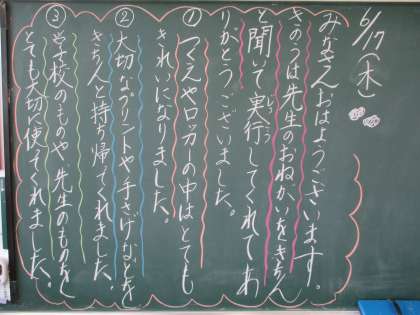 6/17(木)
みなさんおはようございます。
きのうは先生のおねがいをきちん
と聞いて実行してくれてあ
りがとうございました。
①つくえやロッカーの中はとても
きれいになりました。
②大切なプリントや手さげなどを
きちんと持ち帰ってくれました。
③学校のものや、先生のものを
とても大切に使ってくれました。